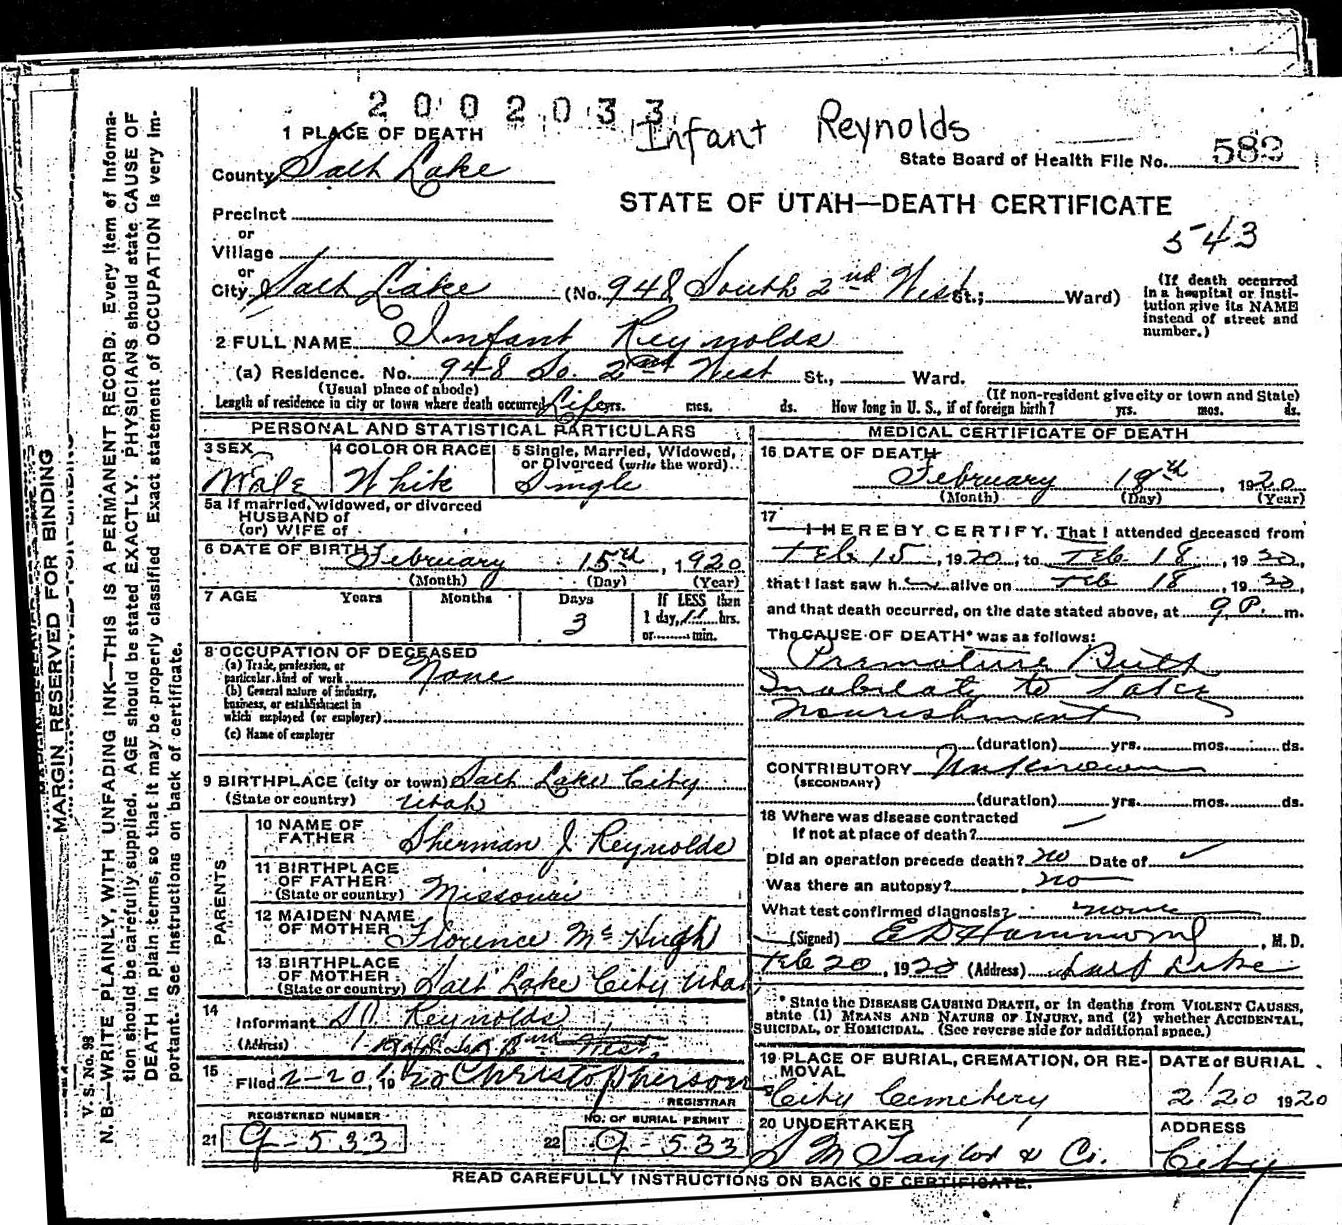 2002033
Infant Reynolds
1 PLACE OF DEATH
State Board of Health File No. 582
County Salt Lake
STATE OF UTAH—DEATH CERTIFICATE
Precinct
543
or
Village
or
City Salt Lake (No. 948 South 2nd West St.; Ward)
(If death occurred in a hospital or insti-
tution give its NAME
instead of street and
number.)
2 FULL NAME Infant Reynolds
(a) Residence. No. 948 So. 2nd West St., Ward.
(Usual place of abode) (If non-resident give city or town and State)
Length of residence in city or town where death occurred Life yrs. mos. ds. How long in U. S., if of foreign birth? yrs. mos. ds.
PERSONAL AND STATISTICAL PARTICULARS
3 SEX Male
4 COLOR OR RACE White
5 Single, Married, Widowed,
or Divorced (write the word)
Single
5a If married, widowed, or divorced
HUSBAND of
(or) WIFE of
6 DATE OF BIRTH February 15th, 1920
(Month) (Day) (Year)
7 AGE Years Months Days 3
If LESS than
1 day, hrs.
or min.
8 OCCUPATION OF DECEASED
(a) Trade, profession, or
particular kind of work None
(b) General nature of industry,
business, or establishment in
which employed (or employer)
(c) Name of employer
9 BIRTHPLACE (city or town) Salt Lake City
(State or country) Utah
PARENTS
10 NAME OF
FATHER Sherman J. Reynolds
11 BIRTHPLACE
OF FATHER
(State or country) Missouri
12 MAIDEN NAME
OF MOTHER Florence McHugh
13 BIRTHPLACE
OF MOTHER
(State or country) Salt Lake City Utah
14
Informant Reynolds
(Address) West
15
Filed 2-20, 1920 Christopherson
REGISTRAR
REGISTERED NUMBER
21 9-533
NO. OF BURIAL PERMIT
22 9-533
MEDICAL CERTIFICATE OF DEATH
16 DATE OF DEATH
February 18th, 1920
(Month) (Day) (Year)
17
I HEREBY CERTIFY, That I attended deceased from
Feb 15, 1920, to Feb 18, 1920,
that I last saw h alive on Feb 18, 1920,
and that death occurred, on the date stated above, at 9 P. m.
The CAUSE OF DEATH* was as follows:
Premature Birth
Inabilaty to take
nourishment
(duration) yrs. mos. ds.
CONTRIBUTORY Unknown
(SECONDARY)
(duration) yrs. mos. ds.
18 Where was disease contracted
if not at place of death?
Did an operation precede death? no Date of
Was there an autopsy? no
What test confirmed diagnosis? none
(Signed) E D Hammond, M. D.
Feb 20, 1920 (Address) Salt Lake
* State the DISEASE CAUSING DEATH, or in deaths from VIOLENT CAUSES,
state (1) MEANS AND NATURE OF INJURY, and (2) whether ACCIDENTAL,
SUICIDAL, or HOMICIDAL. (See reverse side for additional space.)
19 PLACE OF BURIAL, CREMATION, OR RE-
MOVAL
City Cemetery
DATE OF BURIAL
2/20 1920
20 UNDERTAKER
S M Taylor & Co.
ADDRESS
City
READ CAREFULLY INSTRUCTIONS ON BACK OF CERTIFICATE.
MARGIN RESERVED FOR BINDING
V. S. No. 98
N. B.—WRITE PLAINLY, WITH UNFADING INK—THIS IS A PERMANENT RECORD. Every item of informa-
tion should be carefully supplied. AGE should be stated EXACTLY. PHYSICIANS should state CAUSE OF
DEATH in plain terms, so that it may be properly classified. Exact statement of OCCUPATION is very im-
portant. See instructions on back of certificate.